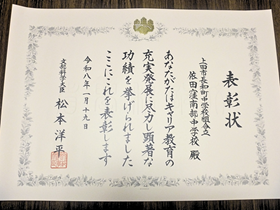 表彰状
上田市長和町中学校組合立
依田窪南部中学校 殿
あなたがたはキャリア教育の
充実発展に尽力し顕著な
功績を挙げられました
ここにこれを表彰します
令和八年一月十九日
文部科学大臣 松本洋平